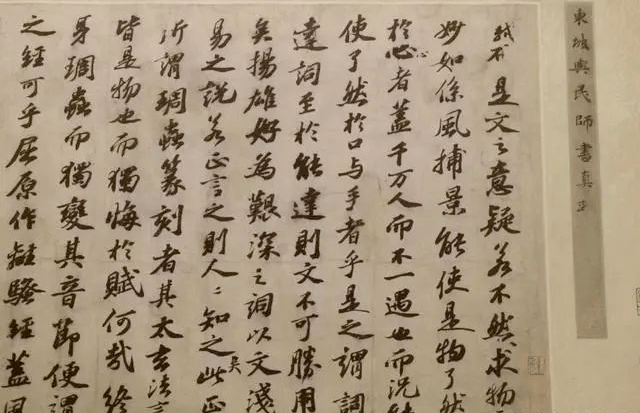 東坡與民師書真
不是文之意疑若不然求物
妙如係風捕景能使是物了然
於心者蓋千万人而不一遇也而况能
使了然於口与手者乎是之謂詞
達詞至於能達則文不可勝用
矣揚雄好為艱深之詞以文淺
易之說若正言之則人〻知之矣此正
所謂琱蟲篆刻者其太玄法言
皆是物也而獨悔於賦何哉終
身琱蟲而獨變其音節便謂
之經可乎屈原作離騷經蓋風